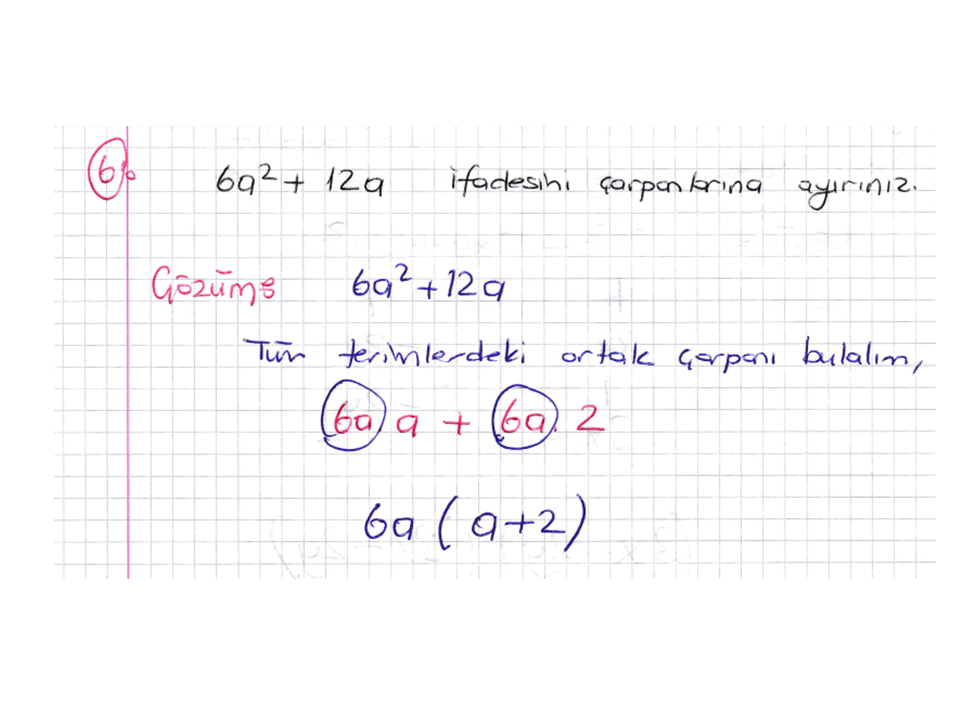 6) 6a² + 12a ifadesini çarpanlarına ayırınız.
Çözüm: 6a² + 12a
Tüm terimlerdeki ortak çarpanı bulalım,
6a.a + 6a.2
6a (a+2)